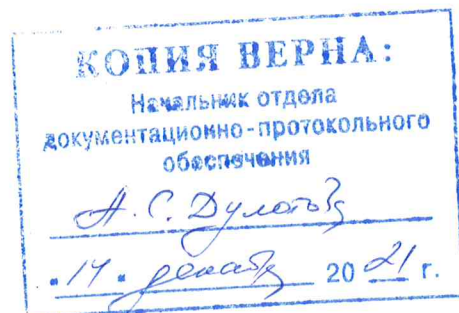 КОПИЯ ВЕРНА:
Начальник отдела
документационно-протокольного
обеспечения
А. С. 
"14" декабря 2021 г.